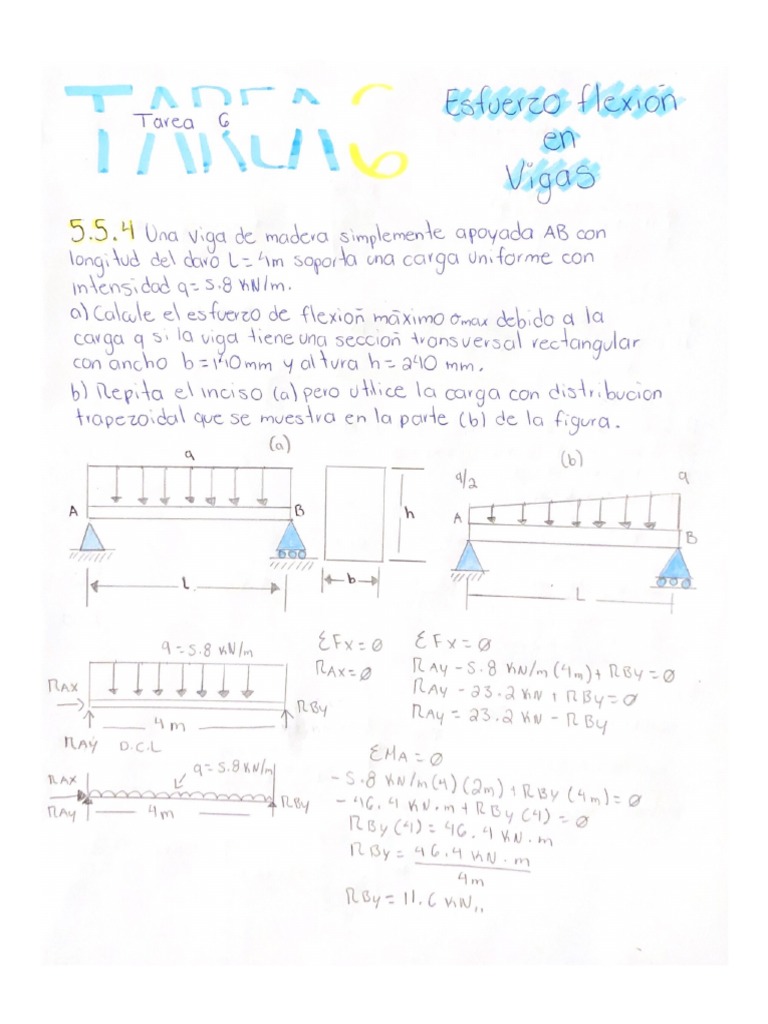 TAREA 6
Tarea 6
Esfuerzo flexión
en
Vigas
5.5.4 Una viga de madera simplemente apoyada AB con
longitud del claro L= 4m soporta una carga uniforme con
intensidad q= 5.8 KN/m.
a) Calcule el esfuerzo de flexión máximo σmax debido a la
carga q si la viga tiene una sección transversal rectangular
con ancho b=140mm y altura h=240 mm.
b) Repita el inciso (a) pero utilice la carga con distribucion
trapezoidal que se muestra en la parte (b) de la figura.
(a)
q
A
B
L
h
b
(b)
q/2
q
A
B
L
q=5.8 KN/m
RAX
RBy
4m
RAY D.C.L
q=5.8KN/m
RAX
RAy
4m
RBy
ΣFx=0
RAx=0
ΣFx=0
RAy-5.8 KN/m(4m)+RBy=0
RAy-23.2KN+RBy=0
RAy=23.2KN-RBy
ΣMA=0
-5.8 KN/m(4)(2m)+RBy(4m)=0
-46.4 KN.m+RBy(4)=0
RBy(4)=46.4KN.m
RBy=46.4KN.m
4m
RBy=11.6KN,,